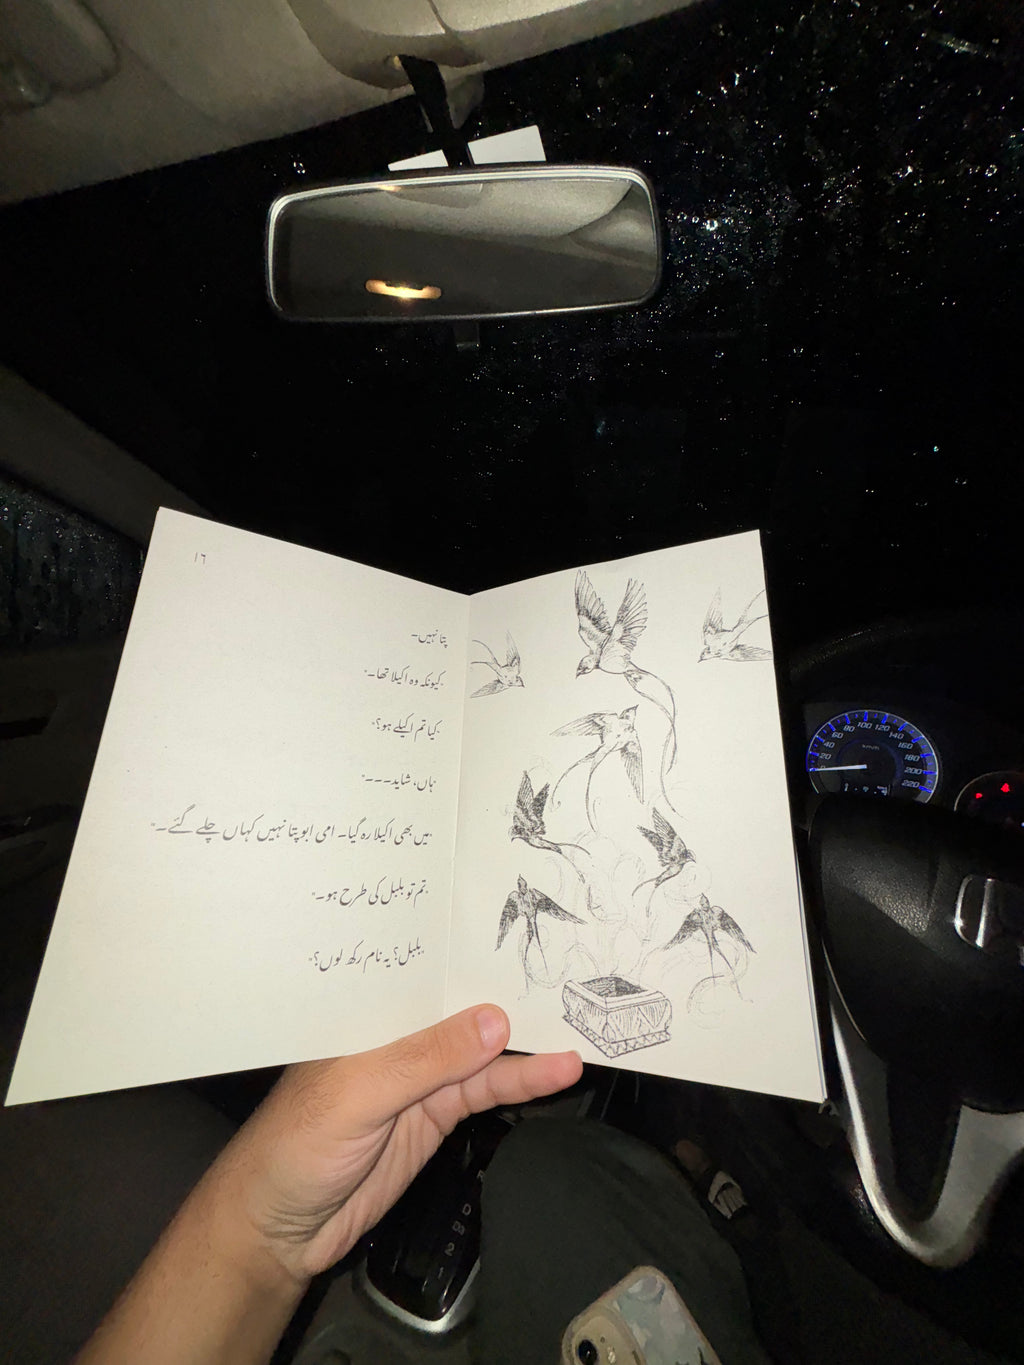 ١٦
پتا نہیں۔
"کیونکہ وہ اکیلا تھا۔"
"کیا تم اکیلے ہو؟"
"ہاں، شاید۔۔۔"
"میں بھی اکیلا رہ گیا۔ امی ابو پتا نہیں کہاں چلے گئے۔"
"تم تو بلبل کی طرح ہو۔"
"بلبل؟ یہ نام رکھ لوں؟"
0 20 40 60 80 100 120 140 160 180 200 220
km/h
R
D
2
1